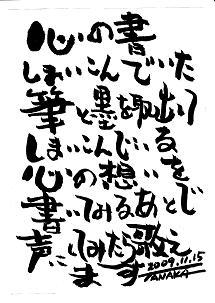 心の書
しまいこんでいた
筆と墨を取出して
しまいこんでいる
心の想いを
書いてみるあとで
声にしてみたら歌え
ます
2009.11.15
TANAKA